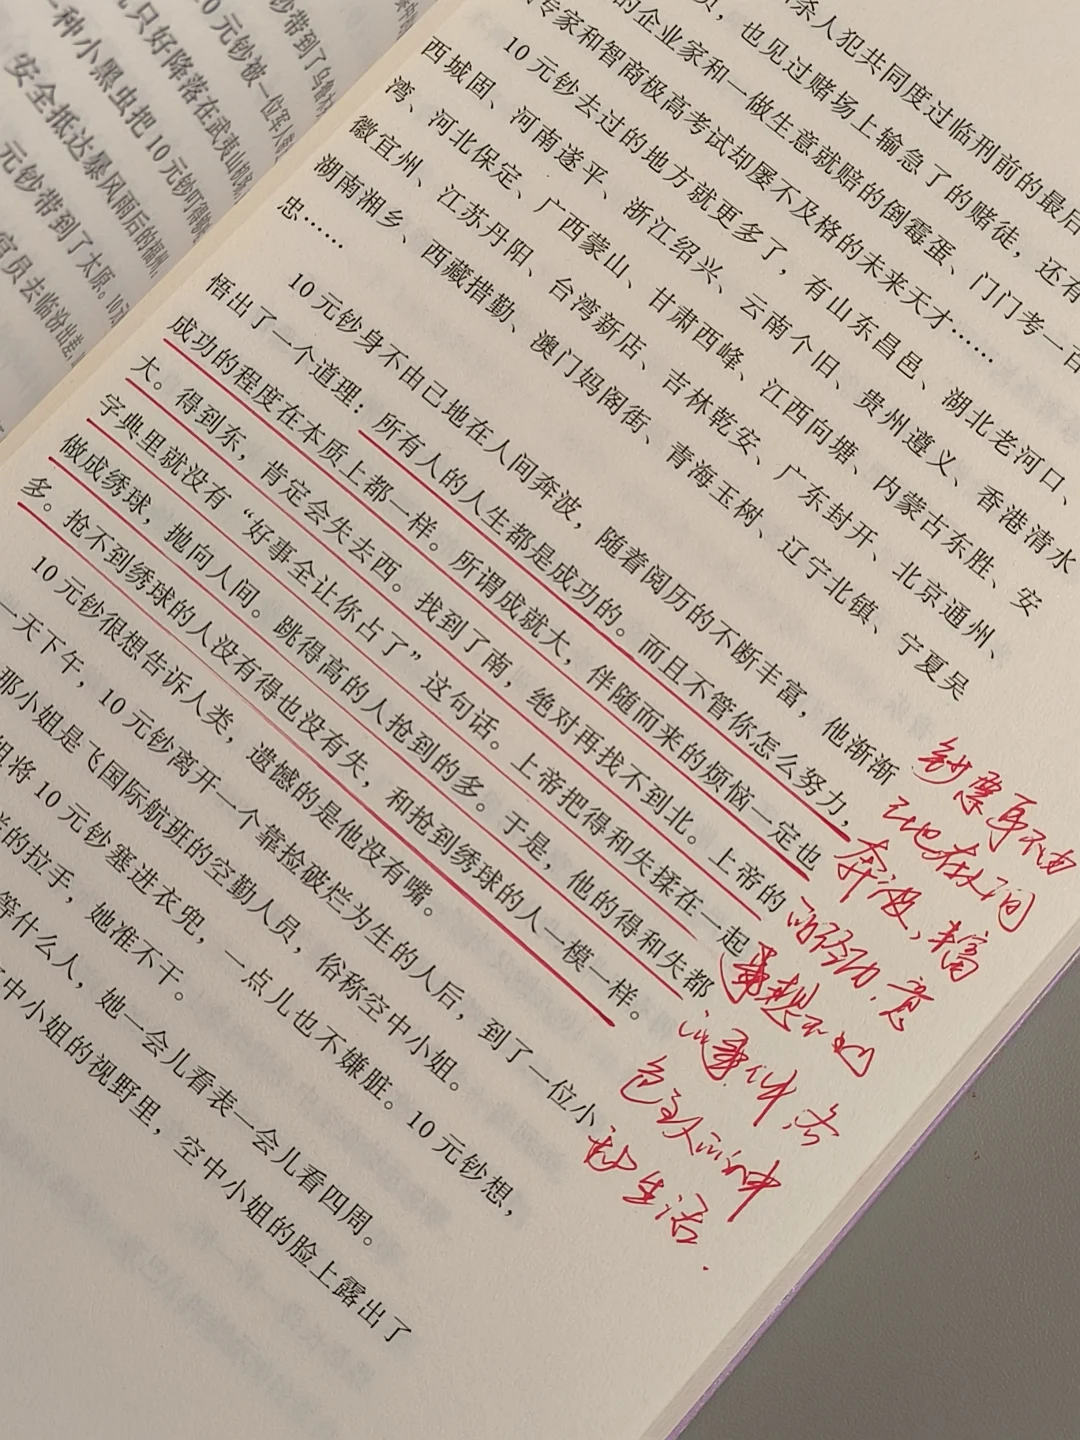 钞带到了乌鲁木
10元钞被一位军人
只好降落在武夷山机场
一种小黑虫把10元钞叮得
安全抵达暴风雨后的福州
元钞带到了太原。10元
官员去临汾出差
条人犯共同度过临刑前的最后
员，也见过赌场上输急了的赌徒，还有
的企业家和一做生意就赔的倒霉蛋、门门考一百
专家和智商极高考试却屡不及格的未来天才……
10元钞去过的地方就更多了，有山东昌邑、湖北老河口、
西城固、河南遂平、浙江绍兴、云南个旧、贵州遵义、香港清水
湾、河北保定、广西蒙山、甘肃西峰、江西向塘、内蒙古东胜、安
徽宜州、江苏丹阳、台湾新店、吉林乾安、广东封开、北京通州、
湖南湘乡、西藏措勤、澳门妈阁街、青海玉树、辽宁北镇、宁夏吴
忠……
10元钞身不由己地在人间奔波，随着阅历的不断丰富，他渐渐
悟出了一个道理：所有人的人生都是成功的。而且不管你怎么努力，
成功的程度在本质上都一样。所谓成就大，伴随而来的烦恼一定也
大。得到东，肯定会失去西。找到了南，绝对再找不到北。上帝的
字典里就没有“好事全让你占了”这句话。上帝把得和失揉在一起
做成绣球，抛向人间。跳得高的人抢到的多。于是，他的得和失都
多。抢不到绣球的人没有得也没有失，和抢到绣球的人一模一样。
10元钞很想告诉人类，遗憾的是他没有嘴。
一天下午，10元钞离开一个靠捡破烂为生的人后，到了一位小
那小姐是飞国际航班的空勤人员，俗称空中小姐。
姐将10元钞塞进衣兜，一点儿也不嫌脏。10元钞想，
的拉手，她准不干。
等什么人，她一会儿看表一会儿看四周。
中小姐的视野里，空中小姐的脸上露出了
钞票身不由
己地在人间
奔波，丰富
的经历，意
想不到
的事件，各
色人的种
种生活.